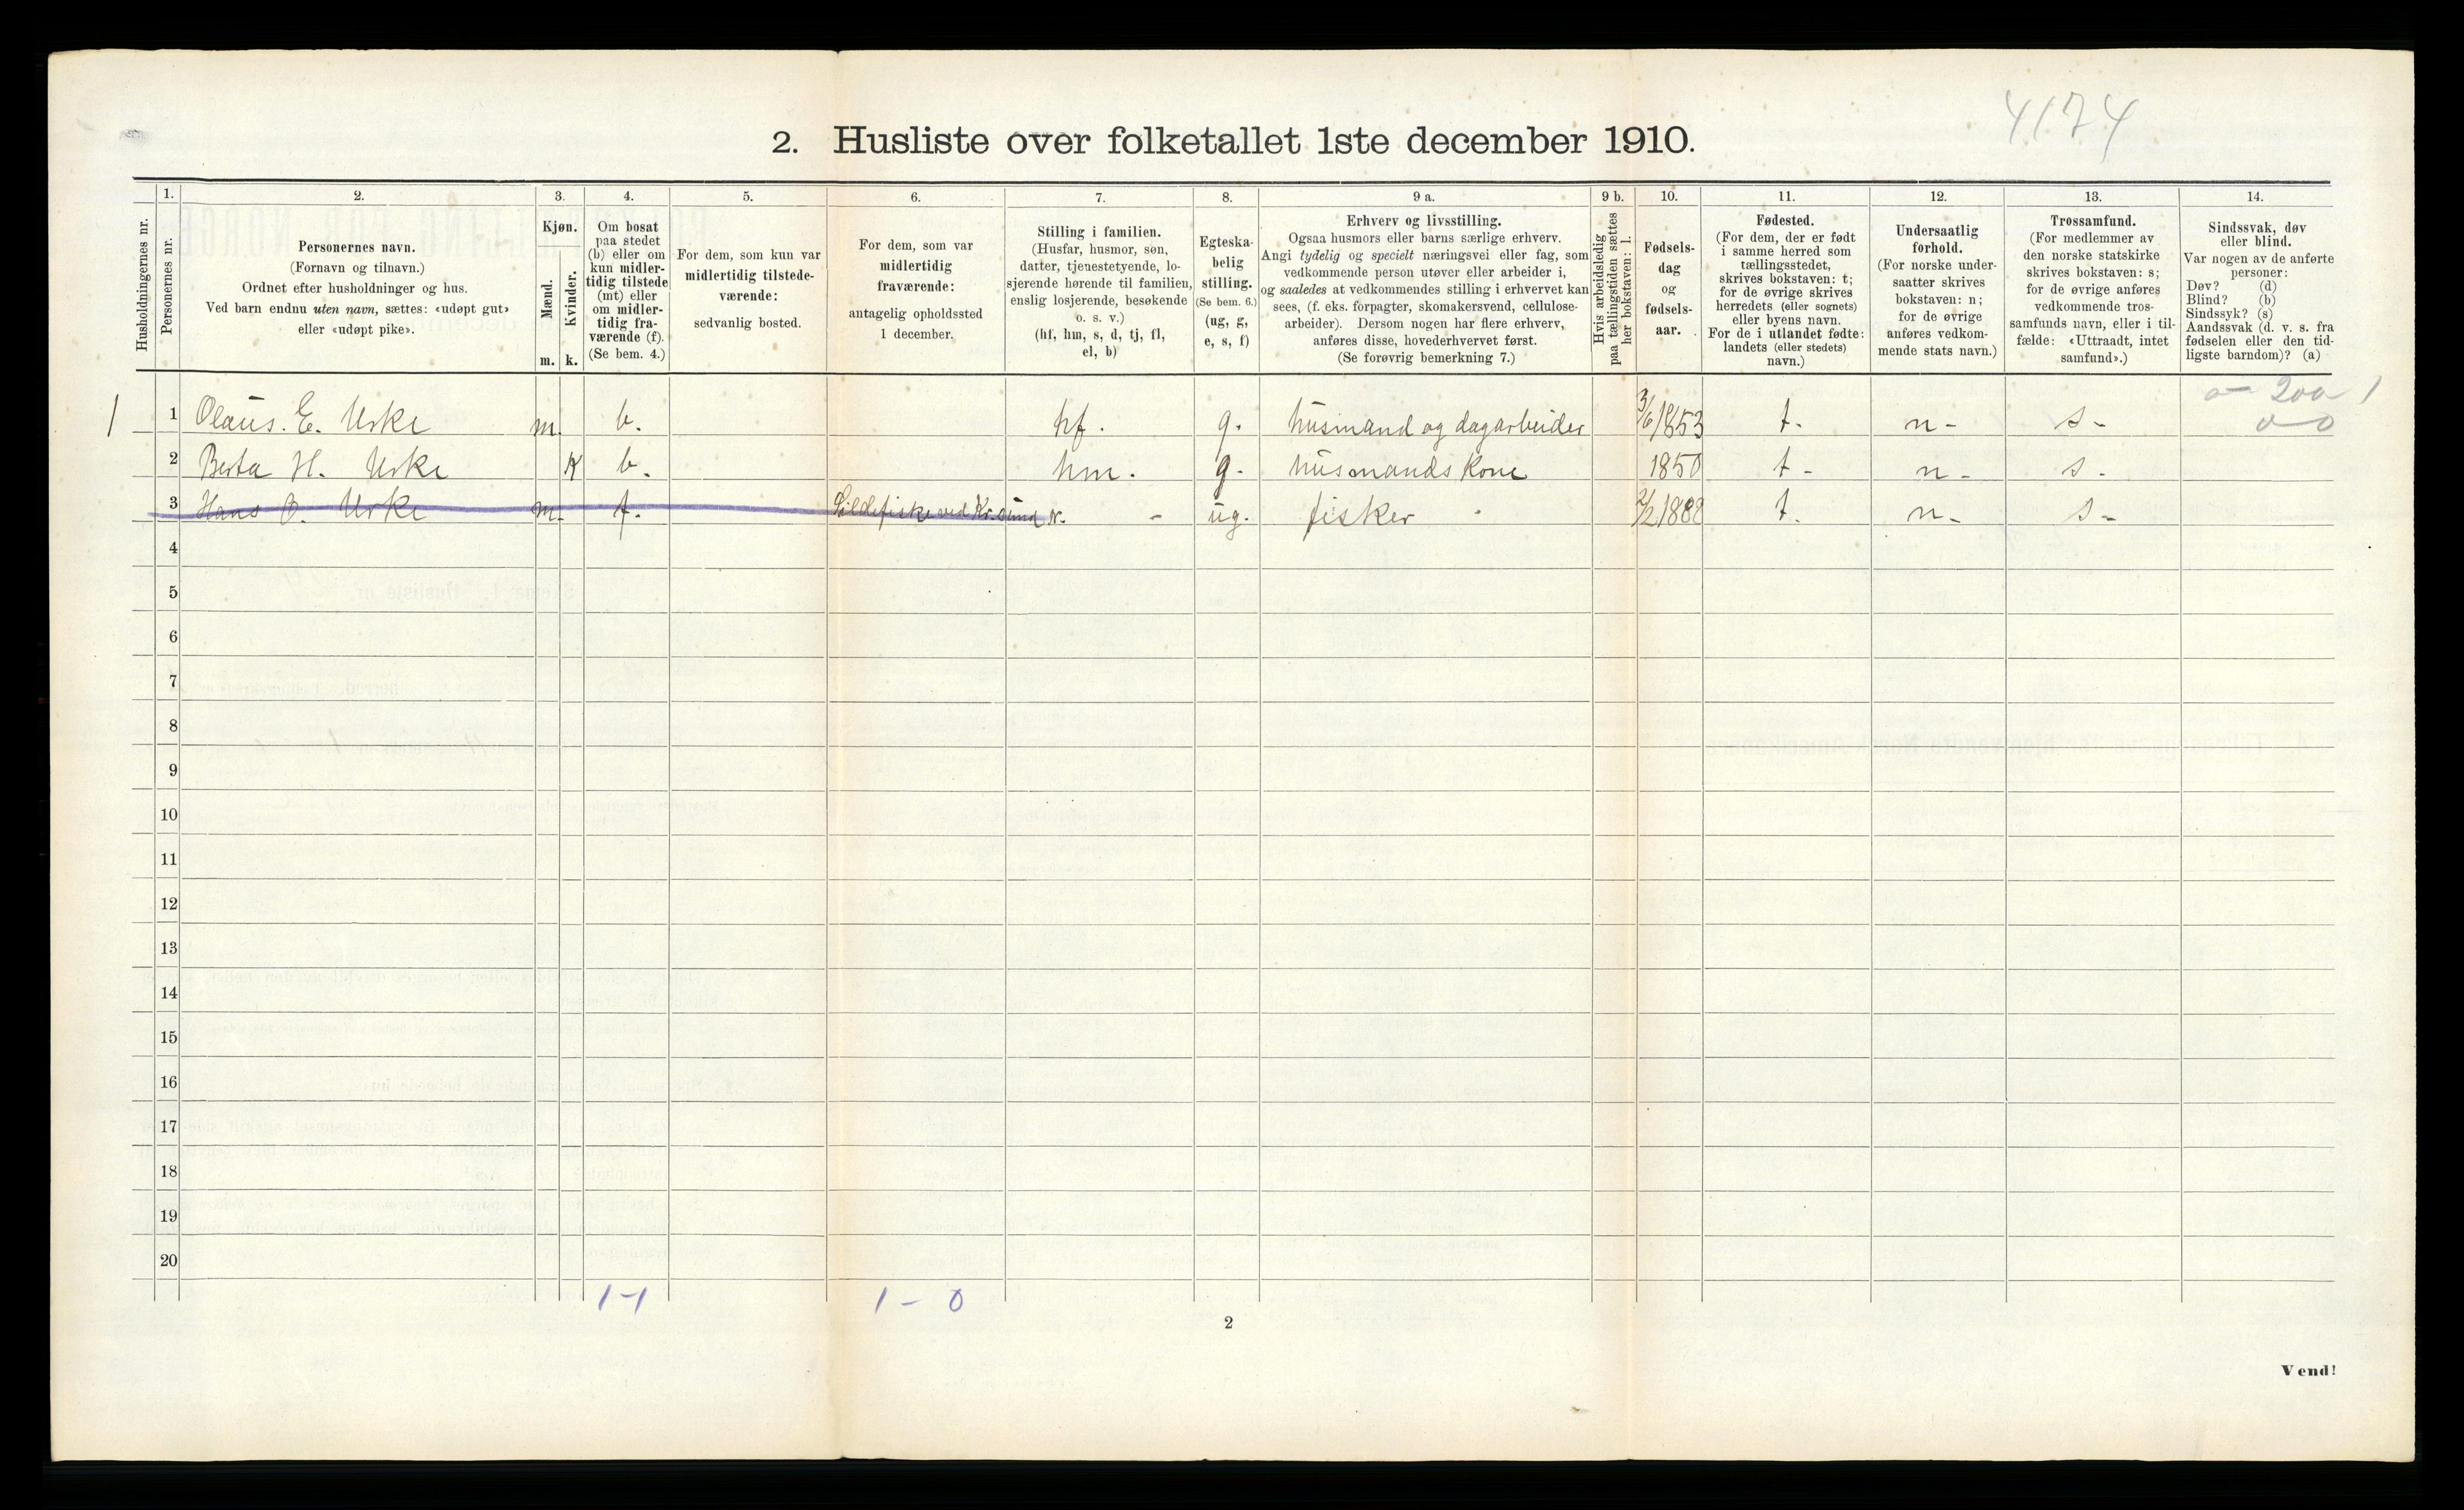 4174
2. Husliste over folketallet 1ste december 1910.
Husholdningernes nr.
1.
Personernes nr.
2.
Personernes navn.
(Fornavn og tilnavn.)
Ordnet efter husholdninger og hus.
Ved barn endnu uten navn, sættes: «udøpt gut»
eller «udøpt pike».
3.
Kjøn.
Mænd.
Kvinder.
m. k.
4.
Om bosat
paa stedet
(b) eller om
kun midler-
tidig tilstede
(mt) eller
om midler-
tidig fra-
værende (f).
(Se bem. 4.)
5.
For dem, som kun var
midlertidig tilstede-
værende:
sedvanlig bosted.
6.
For dem, som var
midlertidig
fraværende:
antagelig opholdssted
1 december.
7.
Stilling i familien.
(Husfar, husmor, søn,
datter, tjenestetyende, lo-
sjerende hørende til familien,
enslig losjerende, besøkende
o. s. v.)
(hf, hm, s, d, tj, fl,
el, b)
8.
Egteska-
belig
stilling.
(Se bem. 6.)
(ug, g,
e, s, f)
9 a.
Erhverv og livsstilling.
Ogsaa husmors eller barns særlige erhverv.
Angi tydelig og specielt næringsvei eller fag, som
vedkommende person utøver eller arbeider i,
og saaledes at vedkommendes stilling i erhvervet kan
sees, (f. eks. forpagter, skomakersvend, cellulose-
arbeider). Dersom nogen har flere erhverv,
anføres disse, hovederhvervet først.
(Se forøvrig bemerkning 7.)
9 b.
Hvis arbeidsledig
paa tællingstiden sættes
her bokstaven: l.
10.
Fødsels-
dag
og
fødsels-
aar.
11.
Fødested.
(For dem, der er født
i samme herred som
tællingsstedet,
skrives bokstaven: t;
for de øvrige skrives
herredets (eller sognets)
eller byens navn.
For de i utlandet fødte:
landets (eller stedets)
navn.)
12.
Undersaatlig
forhold.
(For norske under-
saatter skrives
bokstaven: n;
for de øvrige
anføres vedkom-
mende stats navn.)
13.
Trossamfund.
(For medlemmer av
den norske statskirke
skrives bokstaven: s;
for de øvrige anføres
vedkommende tros-
samfunds navn, eller i til-
fælde: «Uttraadt, intet
samfund».)
14.
Sindssvak, døv
eller blind.
Var nogen av de anførte
personer:
Døv? (d)
Blind? (b)
Sindssyk? (s)
Aandssvak (d. v. s. fra
fødselen eller den tid-
ligste barndom)? (a)
1 1 Olaus. E. Urke m. b. hf. g. husmand og dagarbeider 3/6 1853 t. n- s-
0-0
2 Berta H. Urke K b. hm. g. husmands kone 1850 t- n- s.
3 Hans O. Urke m. f. Sildefiske ved Kr.sund N. - ug. fisker 2/2 1888 t. n- s-
4
5
6
7
8
9
10
11
12
13
14
15
16
17
18
19
20
1-1 1-0
2
Vend!